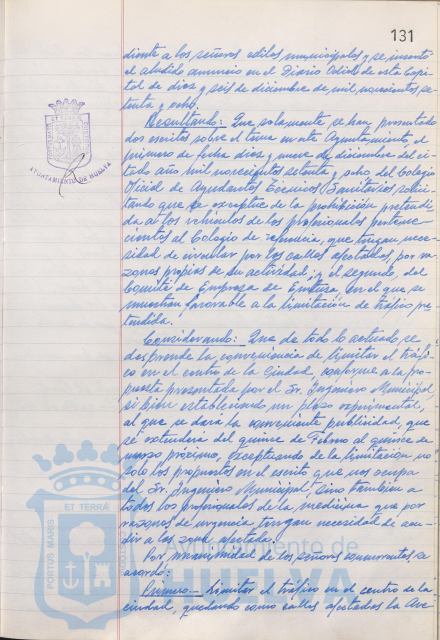 131
diente a los señores ediles municipales y se insertó
el aludido anuncio en el Diario Odiel de esta Capi-
tal de diez y seis de diciembre de mil novecientos se-
tenta y ocho.
Resultando: Que solamente se han presentado
dos escritos sobre el tema en este Ayuntamiento, el
primero de fecha diez y nueve de diciembre del ci-
tado año mil novecientos setenta y ocho del Colegio
Oficial de Ayudantes Técnicos Sanitarios solici-
tando que se exceptúe de la prohibición pretendi-
da a los vehículos de los profesionales pertene-
cientes al Colegio de referencia, que tengan nece-
sidad de circular por las calles afectadas, por ra-
zones propias de su actividad; y el segundo, del
Comité de Empresa de Entursa en el que se
muestran favorable a la limitación de tráfico pre-
tendida.
Considerando: Que de todo lo actuado se
desprende la conveniencia de limitar el tráfi-
co en el centro de la Ciudad, conforme a la pro-
puesta presentada por el Sr. Ingeniero Municipal,
si bien estableciendo un plazo experimental,
al que se dará la conveniente publicidad, que
se extenderá del quince de Febrero al quince de
marzo próximo, exceptuando de la limitación no
solo los propuestos en el escrito que nos ocupa
del Sr. Ingeniero Municipal, sino también a
todos los profesionales de la medicina que por
razones de urgencia tengan necesidad de acu-
dir a la zona afectada.
Por unanimidad de los señores concurrentes, se
acordó:
Primero.- Limitar el tráfico en el centro de la
ciudad, quedando como calles afectadas la Ave
AYUNTAMIENTO DE HUELVA
PORTUS MARIS ET TERRÆ
Ayuntamiento de
HUELVA